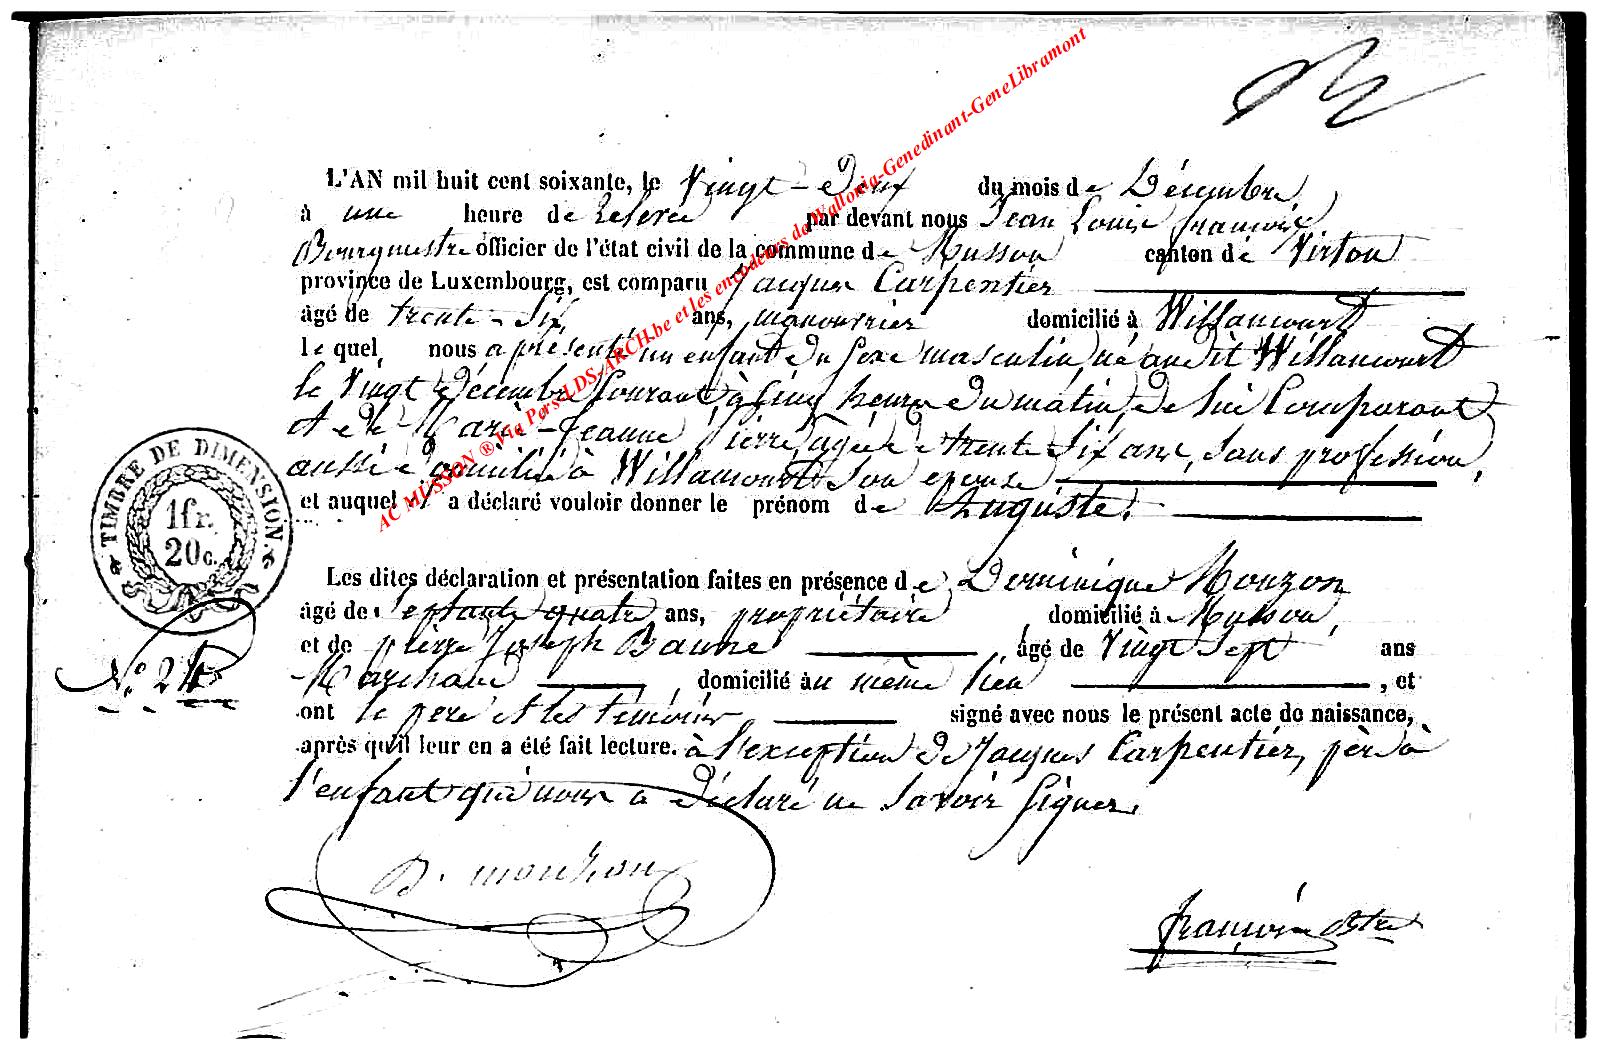 L'AN mil huit cent soixante, le Vingt-Deux du mois de Décembre
à une heure de relevée par devant nous Jean Louis François
Bourgmestre officier de l'état civil de la commune de Musson canton de Virton
province de Luxembourg, est comparu Jacques Carpentier
âgé de trente-Six ans, manouvrier domicilié à Willancourt
lequel nous a présenté un enfant du Sexe masculin, né audit Willancourt
le Vingt Décembre Courant à Cinq heures du matin, de lui Comparant
et de Marie-Jeanne Pierre, agée de trente Six ans, Sans profession,
aussi domicilié à Willancourt Son épouse
et auquel il a déclaré vouloir donner le prénom de Auguste.
Les dites déclaration et présentation faites en présence de Dominique Mouzon
âgé de Septante quatre ans, propriétaire domicilié à Musson,
et de pierre Joseph Baune âgé de Vingt Sept ans
Marchand domicilié au même lieu , et
ont le père et les témoins signé avec nous le présent acte de naissance,
après qu'il leur en a été fait lecture. à l'exception de Jacques Carpentier, père à
l'enfant qui nous a déclaré ne Savoir Signer.
TIMBRE DE DIMENSION.
1 fr.
20 c.
N° 24
D. mouzon
françois Bstre
AC MUSSON ® Via Pers-LDS-ARCH.be et les encodeurs de Wallonia-Genedinant-GeneLibramont